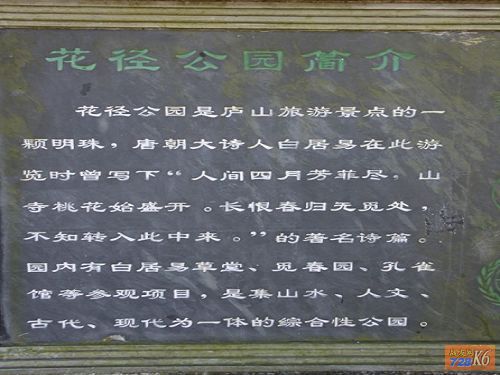 花径公园简介
花径公园是庐山旅游景点的一
颗明珠，唐朝大诗人白居易在此游
览时曾写下“人间四月芳菲尽。山
寺桃花始盛开。长恨春归无觅处，
不知转入此中来。”的著名诗篇。
园内有白居易草堂、觅春园、孔雀
馆等参观项目，是集山水、人文、
古代、现代为一体的综合性公园。
728K6